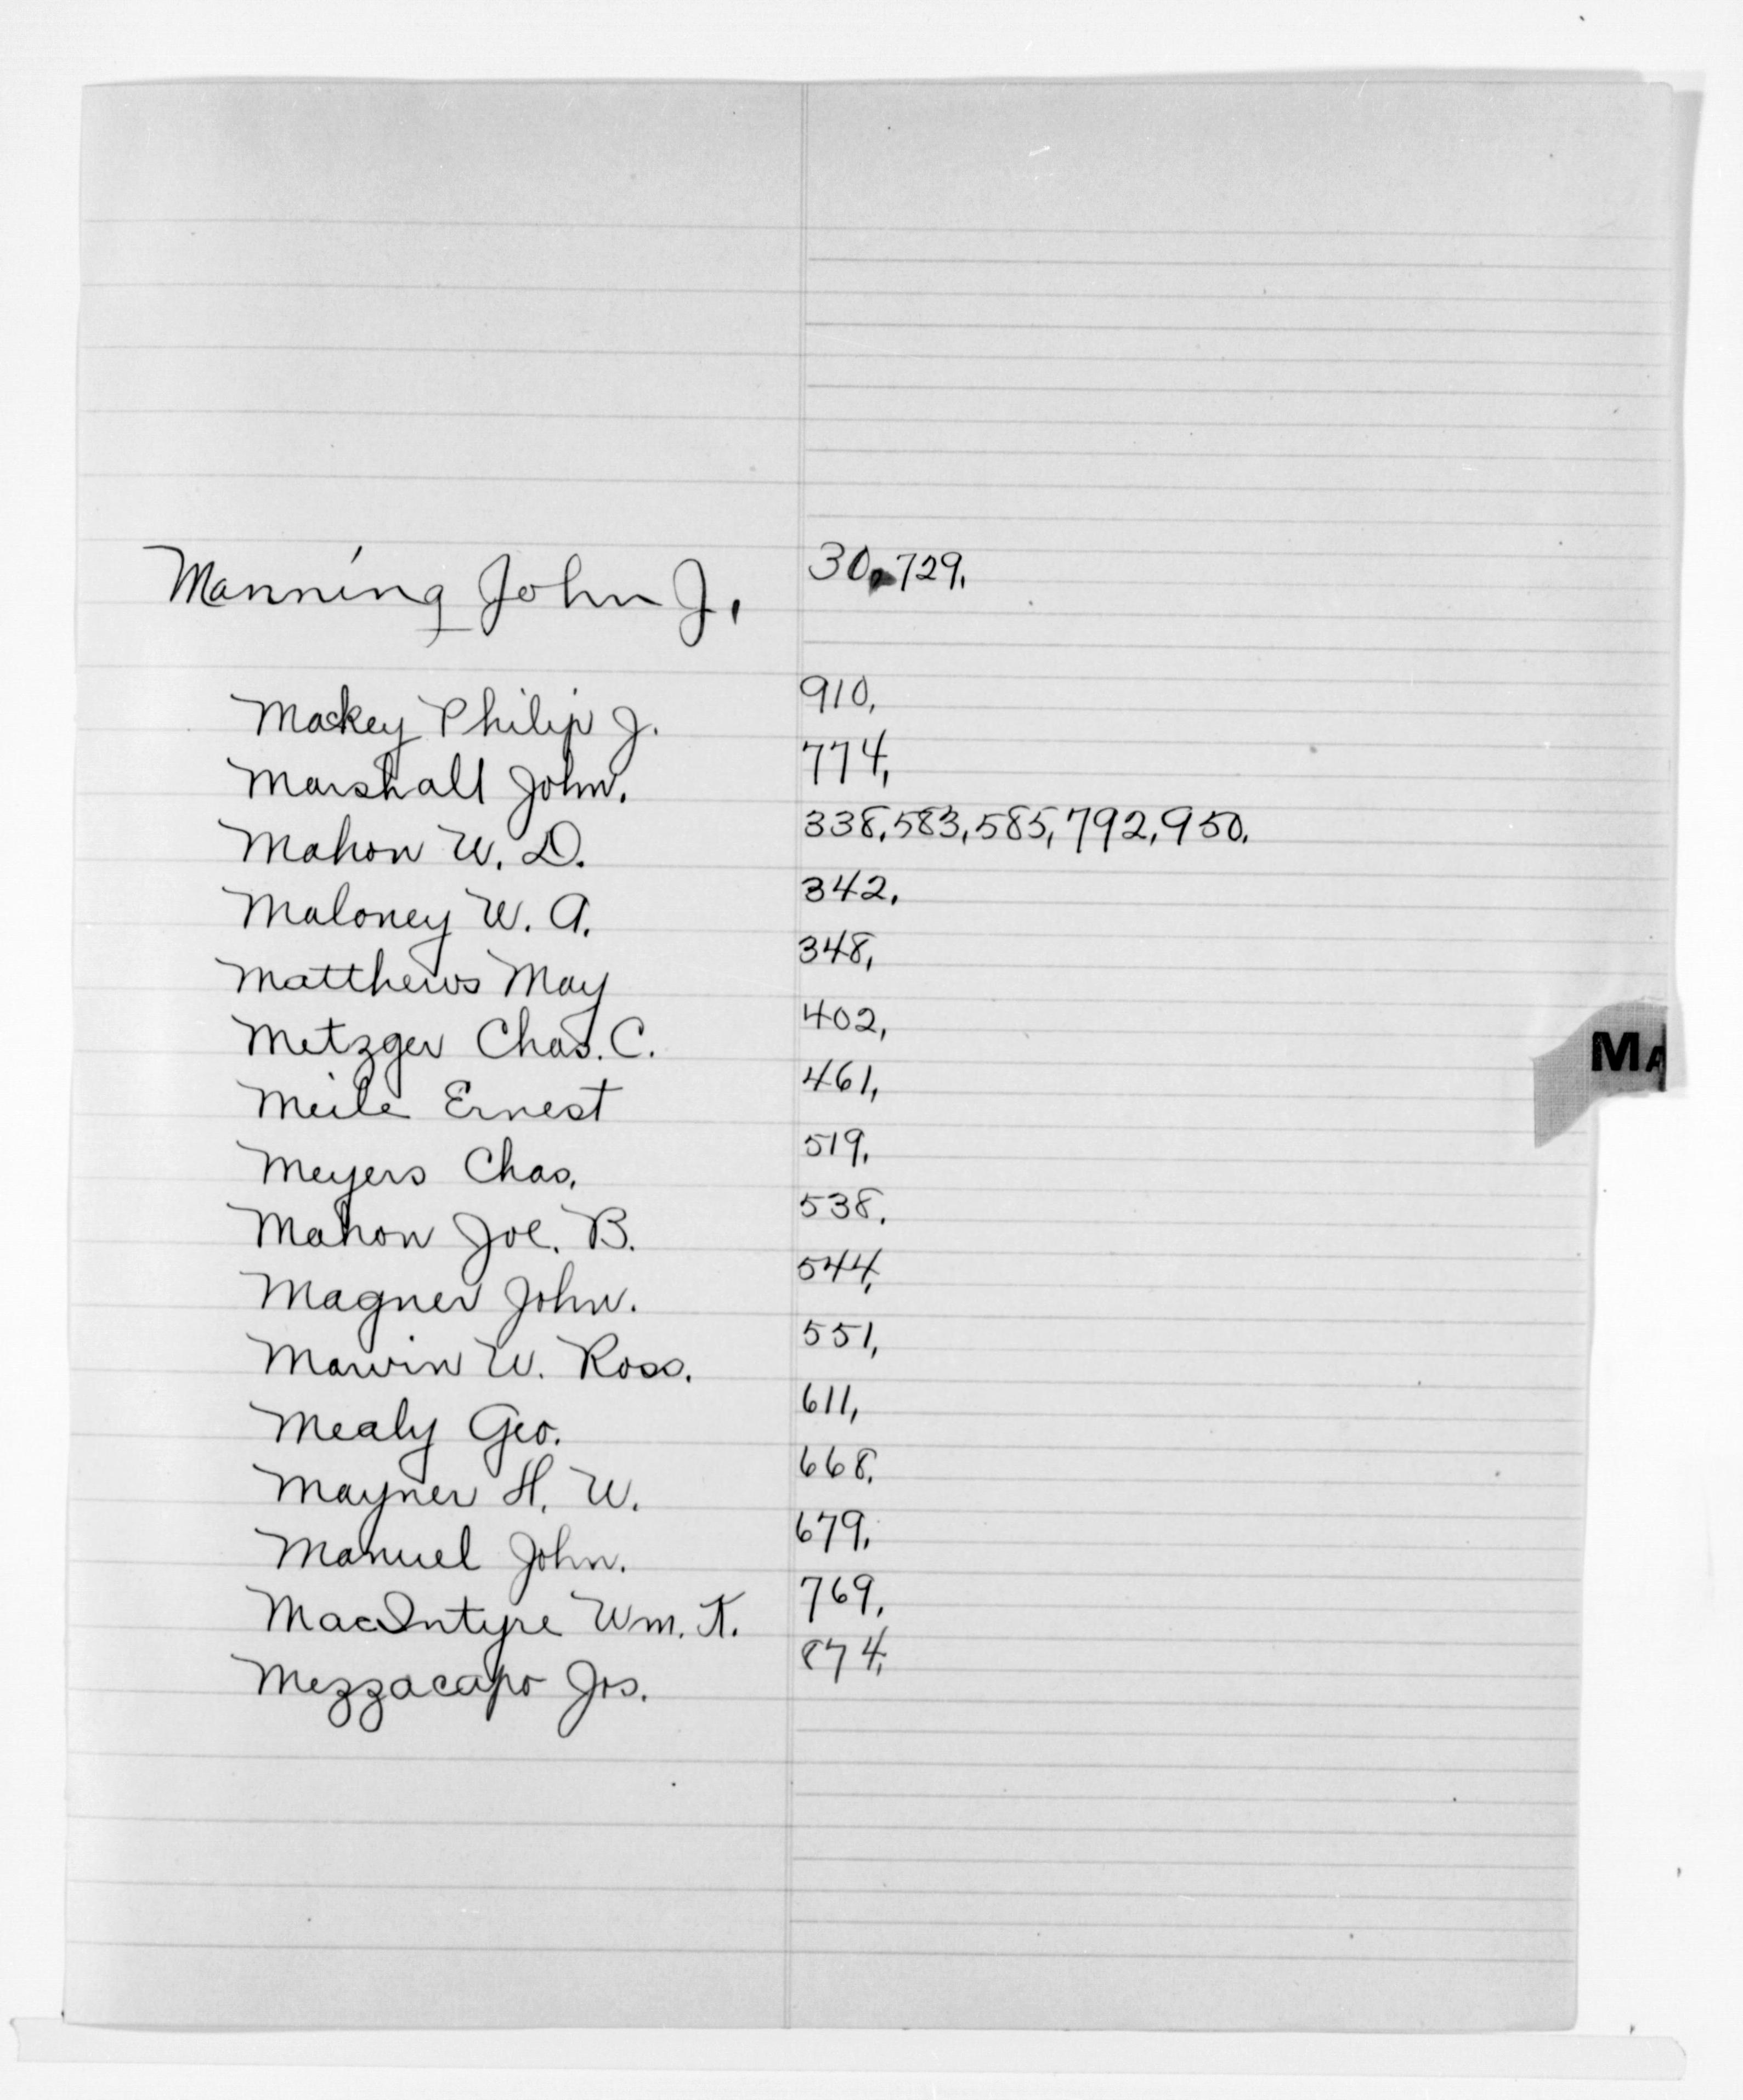 Manning John J, 30,729,
Mackey Philip J. 910,
Marshall John. 774,
Mahon W. D. 338,583,585,792,950.
Maloney W. A. 342,
Matthews May 348,
Metzger Chas. C. 402,
MA
Meile Ernest 461,
Meyers Chas, 519,
Mahon Joe. B. 538,
Magner John. 544,
Marvin W. Ross. 551,
Mealy Geo. 611,
Mayner H. W. 668,
Manuel John. 679,
MacIntyre Wm. K. 769,
Mezzacapo Jos. 874,